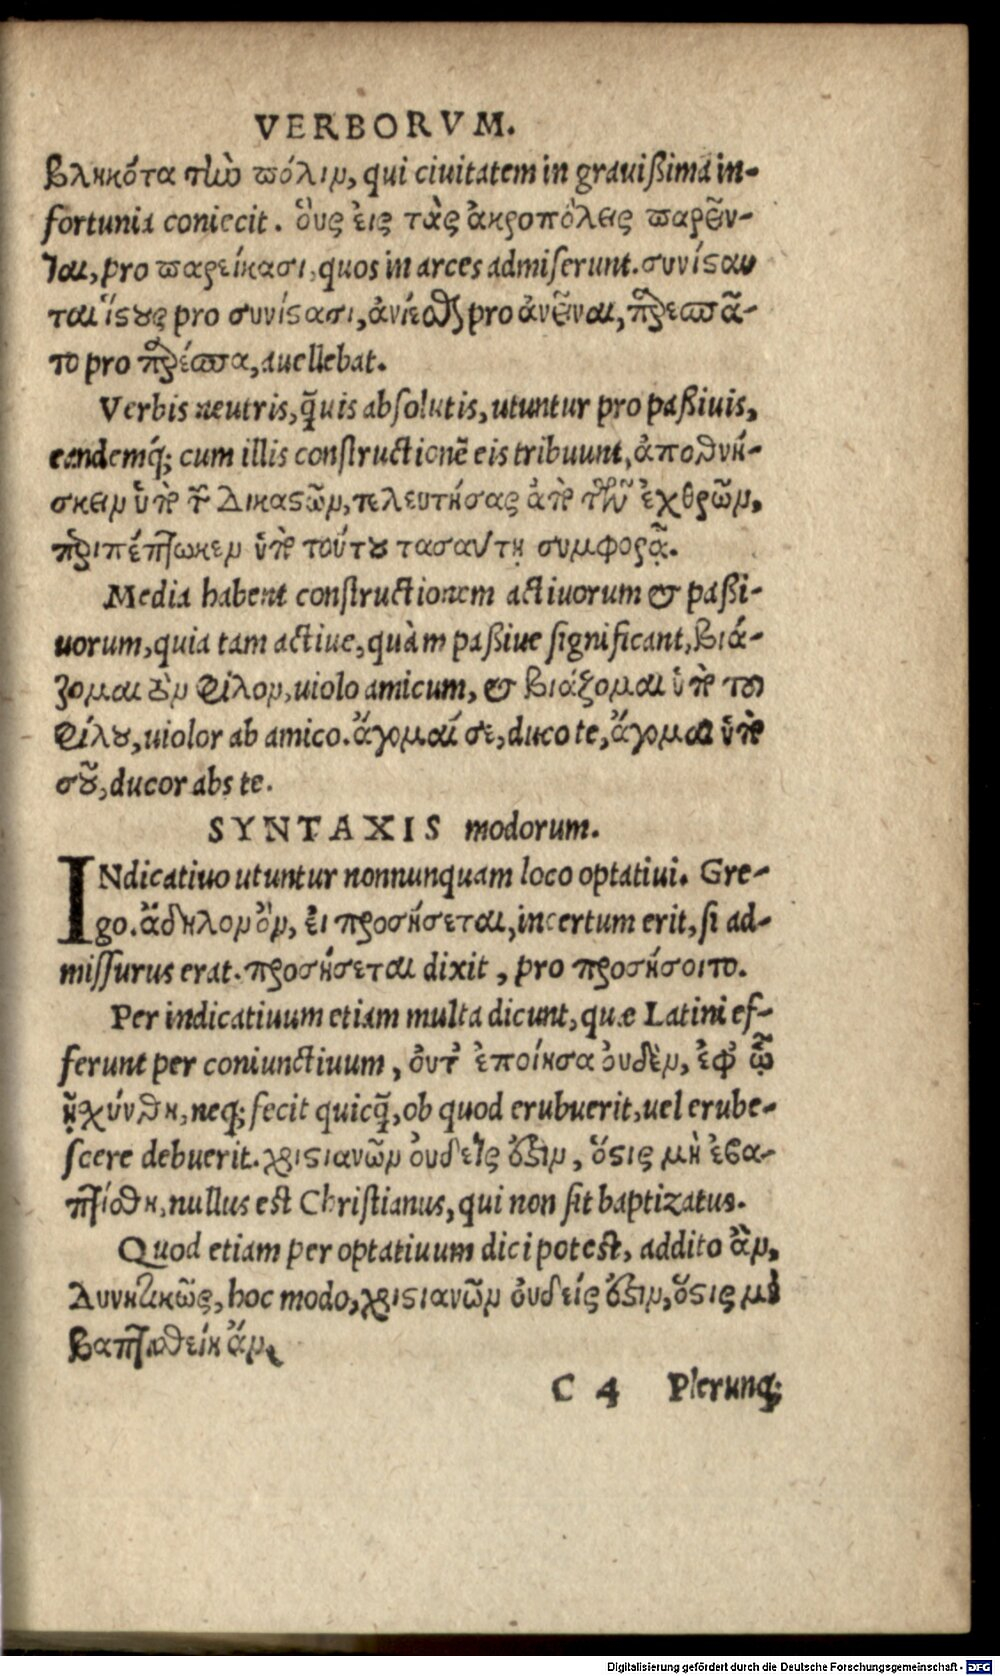 VERBORVM.
βληκότα τὴν πόλιν, qui ciuitatem in grauißima in-
fortunia coniecit. οὓς εἰς τὰς ἀκροπόλεις παρεῖν-
ται, pro παρείκασι, quos in arces admiserunt. συνίσαν
ται ἵςους pro συνίςασι, ἀνίεσθαι pro ἀνεῖναι, περιεσπᾶ-
το pro περιέσπα, auellebat.
Verbis neutris, q̃uis absolutis, utuntur pro paßiuis,
eandemq́; cum illis constructionẽ eis tribuunt, ἀποθνή-
σκειν ὑπὸ τῶν δικαςῶν, τελευτήσας ἀπὸ τῶν ἐχθρῶν,
περιπέπτωκεν ὑπὸ τούτου τοσαύτῃ συμφορᾷ.
Media habent constructionem actiuorum & paßi-
uorum, quia tam actiue, quàm paßiue significant, βιά-
ζομαι τὸν φίλον, uiolo amicum, & βιάζομαι ὑπὸ τοῦ
φίλου, uiolor ab amico. ἄγομαί σε, duco te, ἄγομαι ὑπὸ
σοῦ, ducor abs te.
SYNTAXIS modorum.
INdicatiuo utuntur nonnunquam loco optatiui. Gre-
go. ἄδηλον ὂν, εἰ προσήσεται, incertum erit, si ad-
missurus erat. προσήσεται dixit, pro προσήσοιτο.
Per indicatiuum etiam multa dicunt, quæ Latini ef-
ferunt per coniunctiuum, οὔτ' ἐποίησα οὐδὲν, ἐφ' ᾧ
ᾐχύνθη, neq; fecit quicq̃, ob quod erubuerit, uel erube-
scere debuerit. χριςιανῶν οὐδεὶς ἔςιν, ὅςις μὴ ἐβα-
πτίσθη, nullus est Christianus, qui non sit baptizatus.
Quod etiam per optatiuum dici potest, addito ἂν,
δυνητικῶς, hoc modo, χριςιανῶν οὐδείς ἔςιν, ὅςις μὴ
βαπτισθείη ἄν.
C 4 Plerunq;
Digitalisierung gefördert durch die Deutsche Forschungsgemeinschaft - DFG